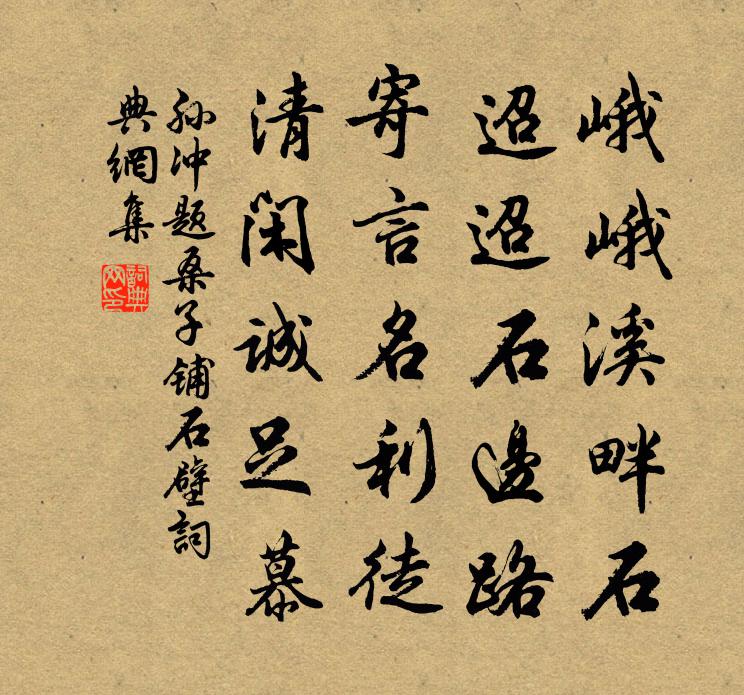 峨峨溪畔石
迢迢石邊路
寄言名利徒
清閑誠足慕
孙冲题桑子铺石壁詞
典網集
詞典
网印